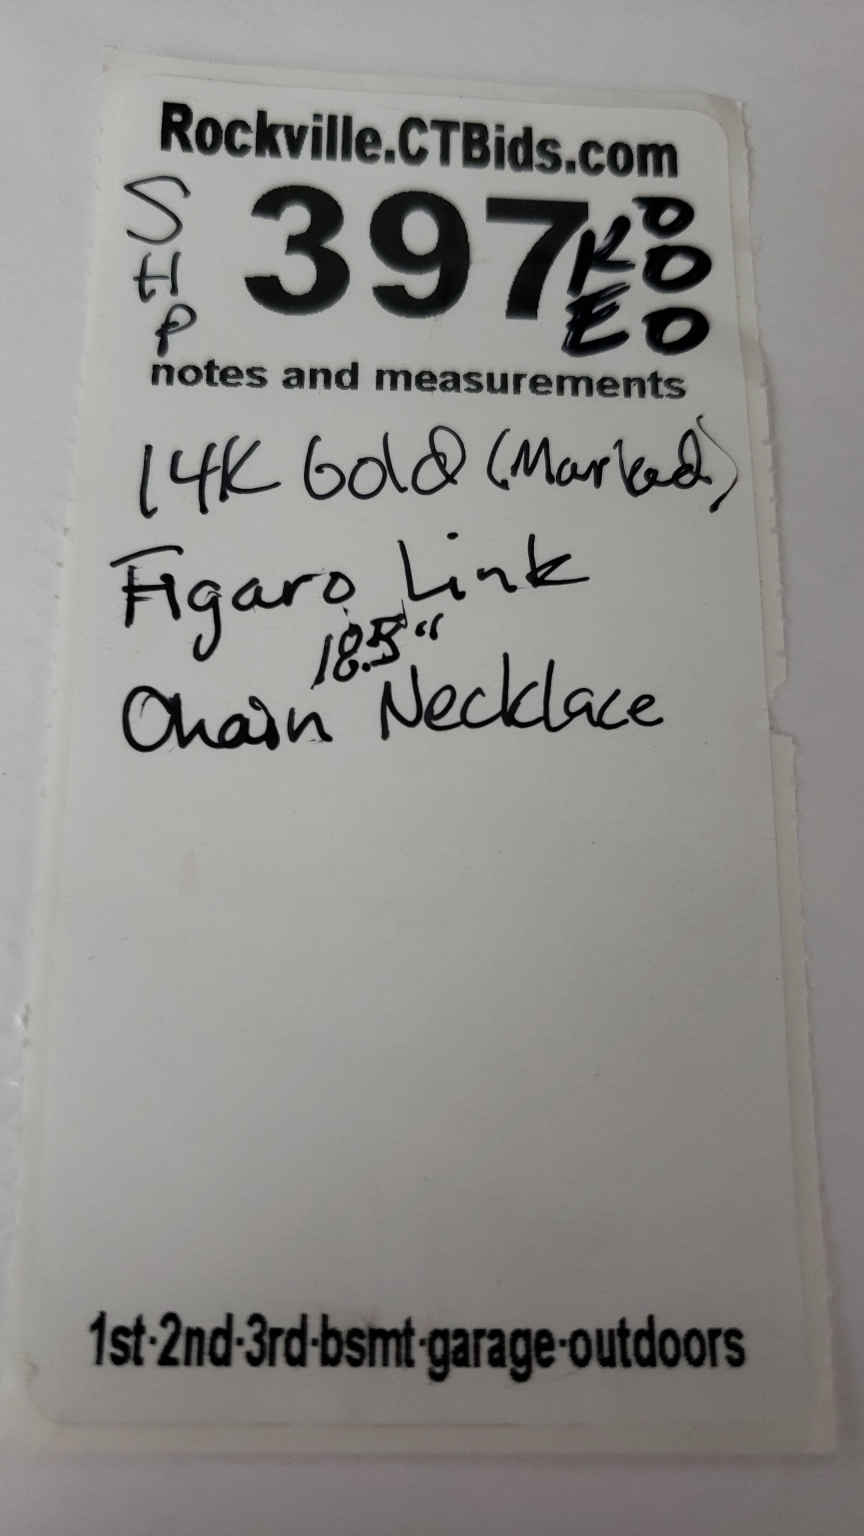 Rockville.CTBids.com
SHP
397
notes and measurements
14K Gold (Marked)
Figaro Link
18.5"
Chain Necklace
1st·2nd·3rd·bsmt·garage·outdoors